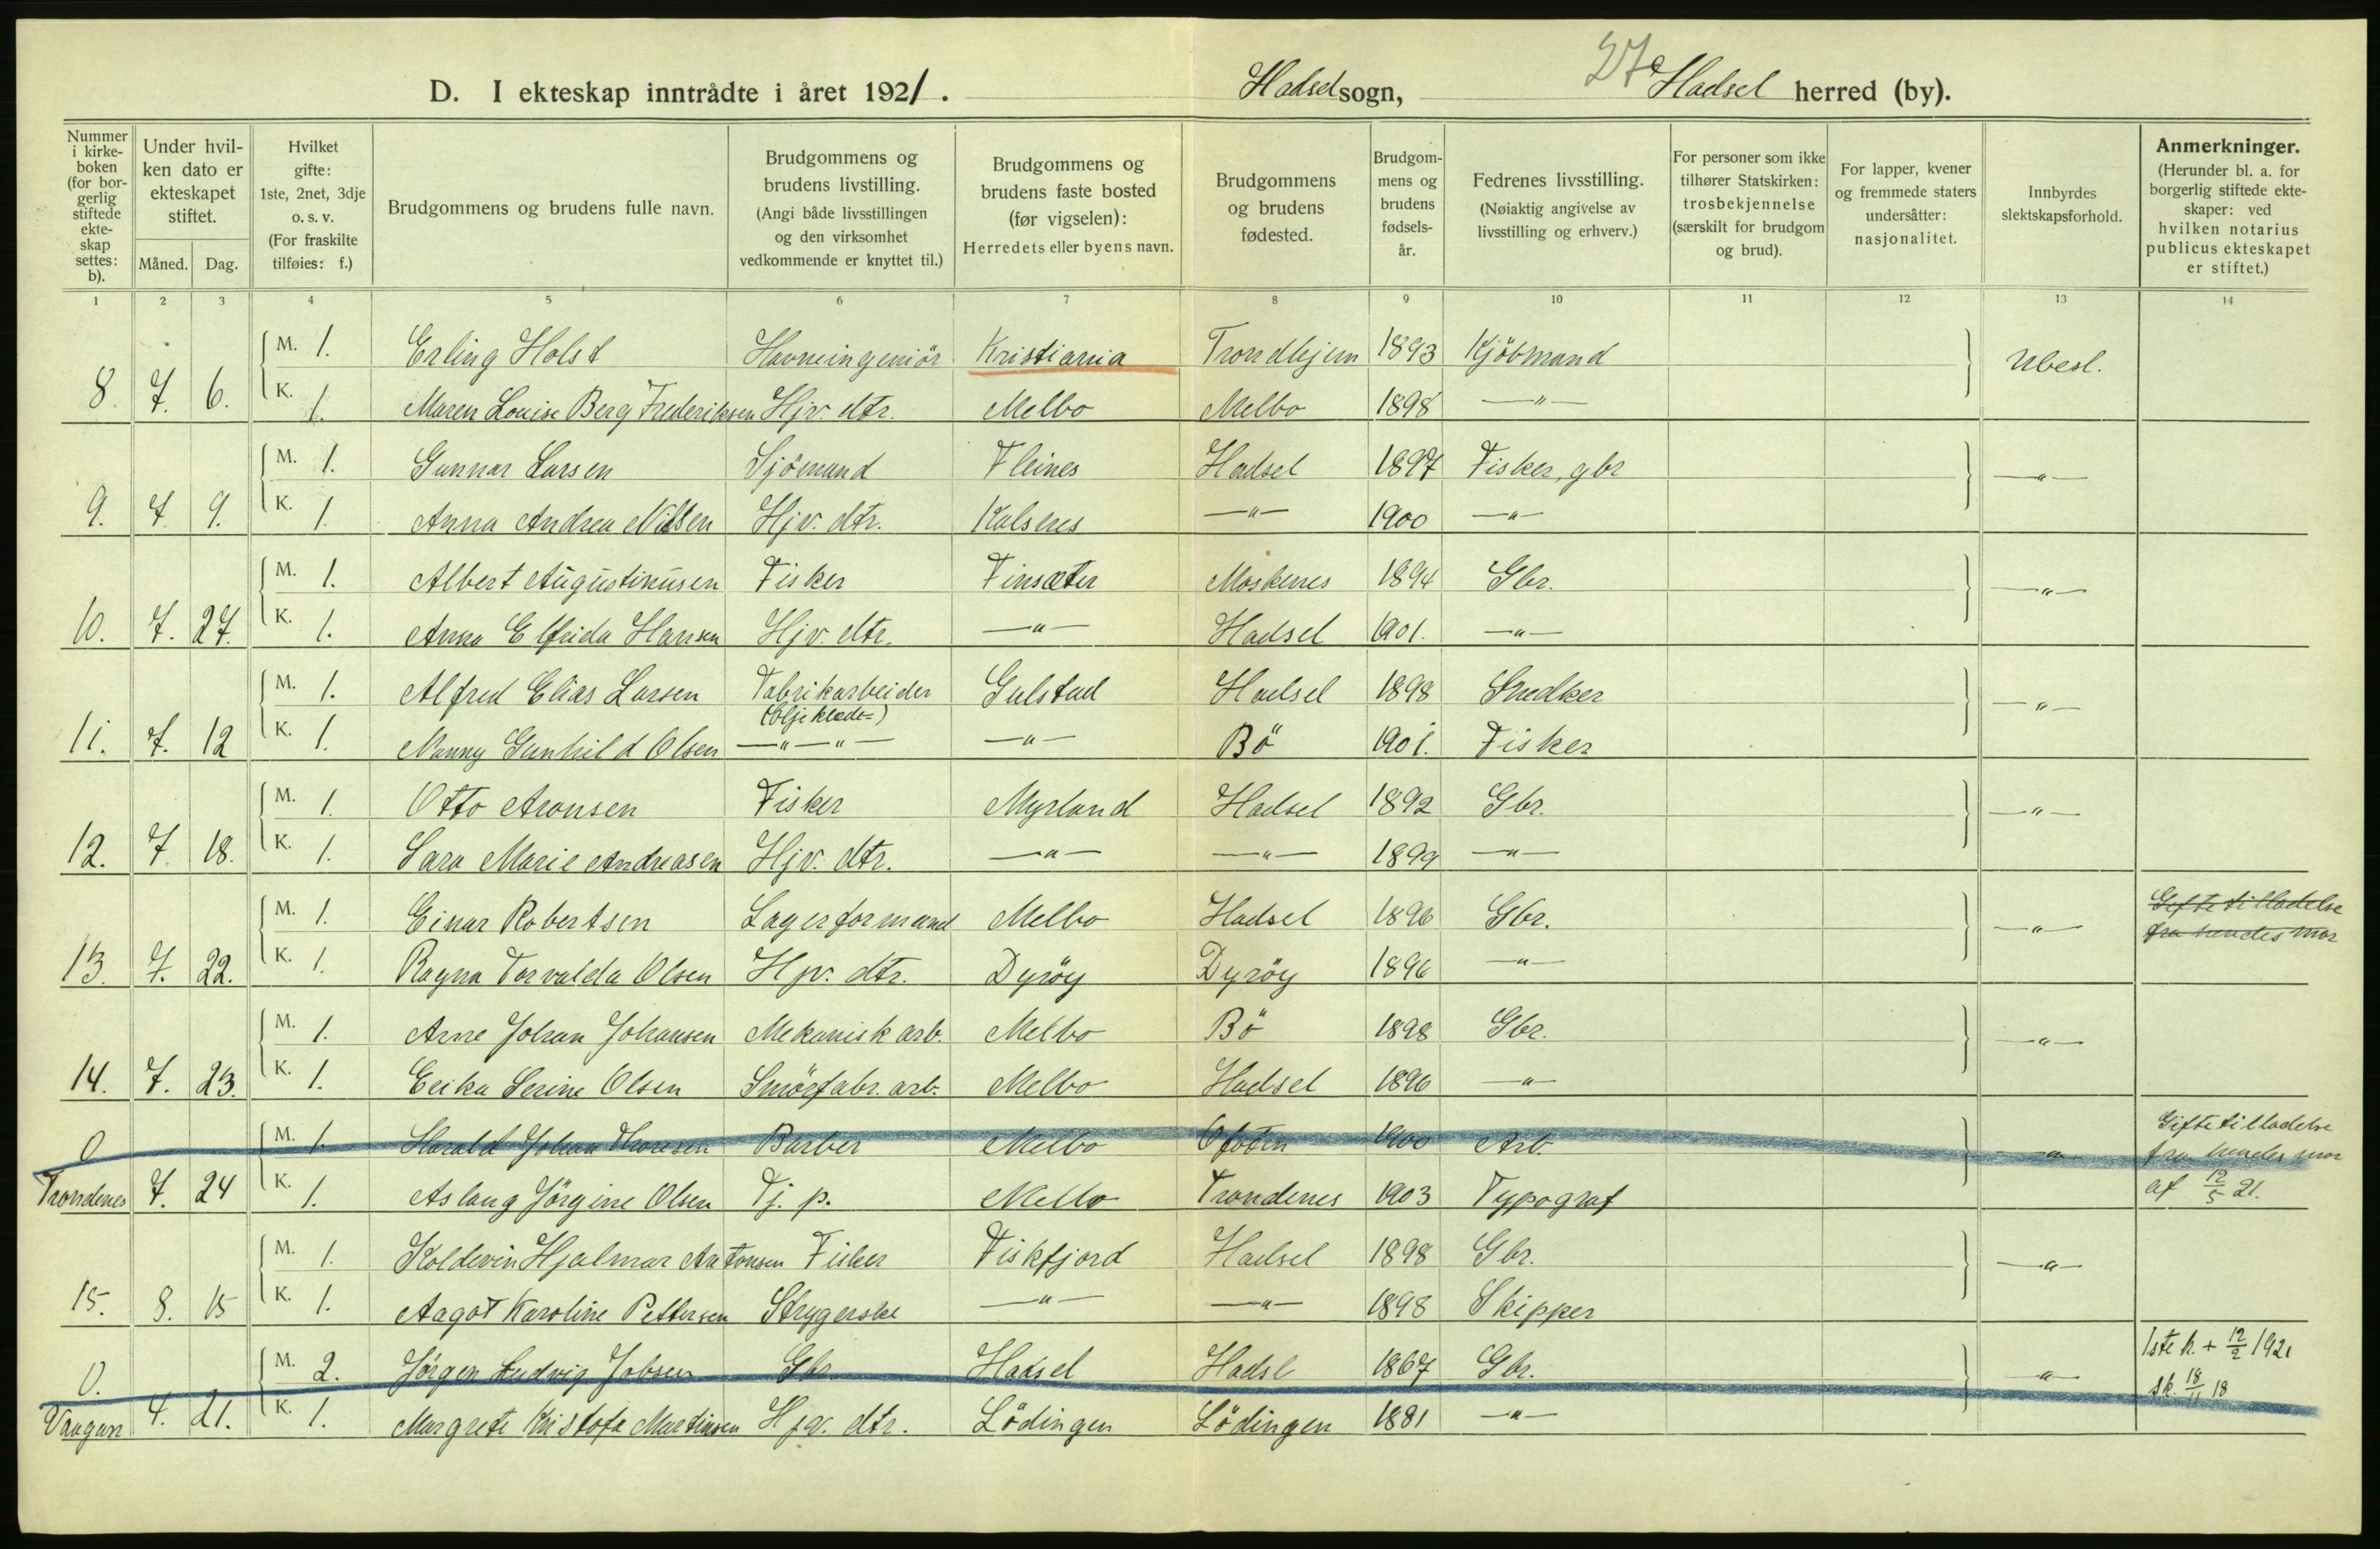 27
D. I ekteskap inntrådte i året 1921. Hadsel sogn, Hadsel herred (by).
Nummer i kirke-boken (for bor-gerlig stiftede ekte-skap settes: b).
Under hvil-ken dato er ekteskapet stiftet.
Måned. Dag.
Hvilket gifte: 1ste, 2net, 3dje o. s. v. (For fraskilte tilføies: f.)
Brudgommens og brudens fulle navn.
Brudgommens og brudens livstilling. (Angi både livsstillingen og den virksomhet vedkommende er knyttet til.)
Brudgommens og brudens faste bosted (før vigselen): Herredets eller byens navn.
Brudgommens og brudens fødested.
Brudgom-mens og brudens fødsels-år.
Fedrenes livsstilling. (Nøiaktig angivelse av livsstilling og erhverv.)
For personer som ikke tilhører Statskirken: trosbekjennelse (særskilt for brudgom og brud).
For lapper, kvener og fremmede staters undersåtter: nasjonalitet.
Innbyrdes slektskapsforhold.
Anmerkninger. (Herunder bl. a. for borgerlig stiftede ekte-skaper: ved hvilken notarius publicus ekteskapet er stiftet.)
1 2 3 4 5 6 7 8 9 10 11 12 13 14
M. 1. Erling Holst Havneingeniör Kristiania Trondhjem 1893 Kjöbmand Ubesl.
8. 7. 6. K. 1. Maren Louise Berg Frederiksen Hjv. dtr. Melbo Melbo 1898 —"—
M. 1. Gunnar Larsen Sjömand Fleines Hadsel 1897 Fisker, gbr —"—
9. 7. 9. K. 1. Anna Andrea Nilsen Hjv. dtr. Kalsnes —"— 1900 —"—
M. 1. Albert Augustinusen Fisker Finsæter Moskenes 1894 Gbr. —"—
10. 7. 27. K. 1. Anna Elfrida Hansen Hjv. dtr. —"— Hadsel 1901. —"—
M. 1. Alfred Elias Larsen Fabrikarbeider Gulstad Hadsel 1898 Snedker —"—
(Oljeklæde=)
11. 7. 12 K. 1. Nanny Gunhild Olsen —"—"— —"— Bö 1901. Fisker
M. 1. Otto Aronsen Fisker Myrland Hadsel 1892 Gbr. —"—
12. 7. 18. K. 1. Sara Marie Andreasen Hjv. dtr. —"— —"— 1899 —"—
M. 1. Einar Robertsen Lagerformand Melbo Hadsel 1896 Gbr. —"— Giftetilladelse fra hendes mor
13. 7. 22. K. 1. Ragna Torvalda Olsen Hjv. dtr. Dyröy Dyröy 1896 —"—
M. 1. Arne Johan Johansen Mekanisk arb. Melbo Bö 1898 Gbr. —"—
14. 7. 23. K. 1. Erika Serine Olsen Smörfabr. arb. Melbo Hadsel 1896 —"—
0 M. 1. Harald Johan Thoresen Barber Melbo Ofoten 1900 Arb. —"— Giftetilladelse fra hendes mor
Trondenes 7. 24 K. 1. Aslaug Jörgine Olsen Tj. p. Melbo Trondenes 1903 Typograf af 12/5 21.
M. 1. Koldevin Hjalmar Antonsen Fisker Fiskfjord Hadsel 1898 Gbr. —"—
15. 8. 15 K. 1. Aagot Karoline Pettersen Strygerske —"— —"— 1898 Skipper
0. M. 2. Jörgen Ludvig Jobsen Gbr. Hadsel Hadsl 1867 Gbr. —"— 1ste h. + 12/2 1921
sk. 18/11 18
Vaagan 4. 21. K. 1. Margrete Kristofa Martinsen Hjv. dtr. Lödingen Lödingen 1881 —"—